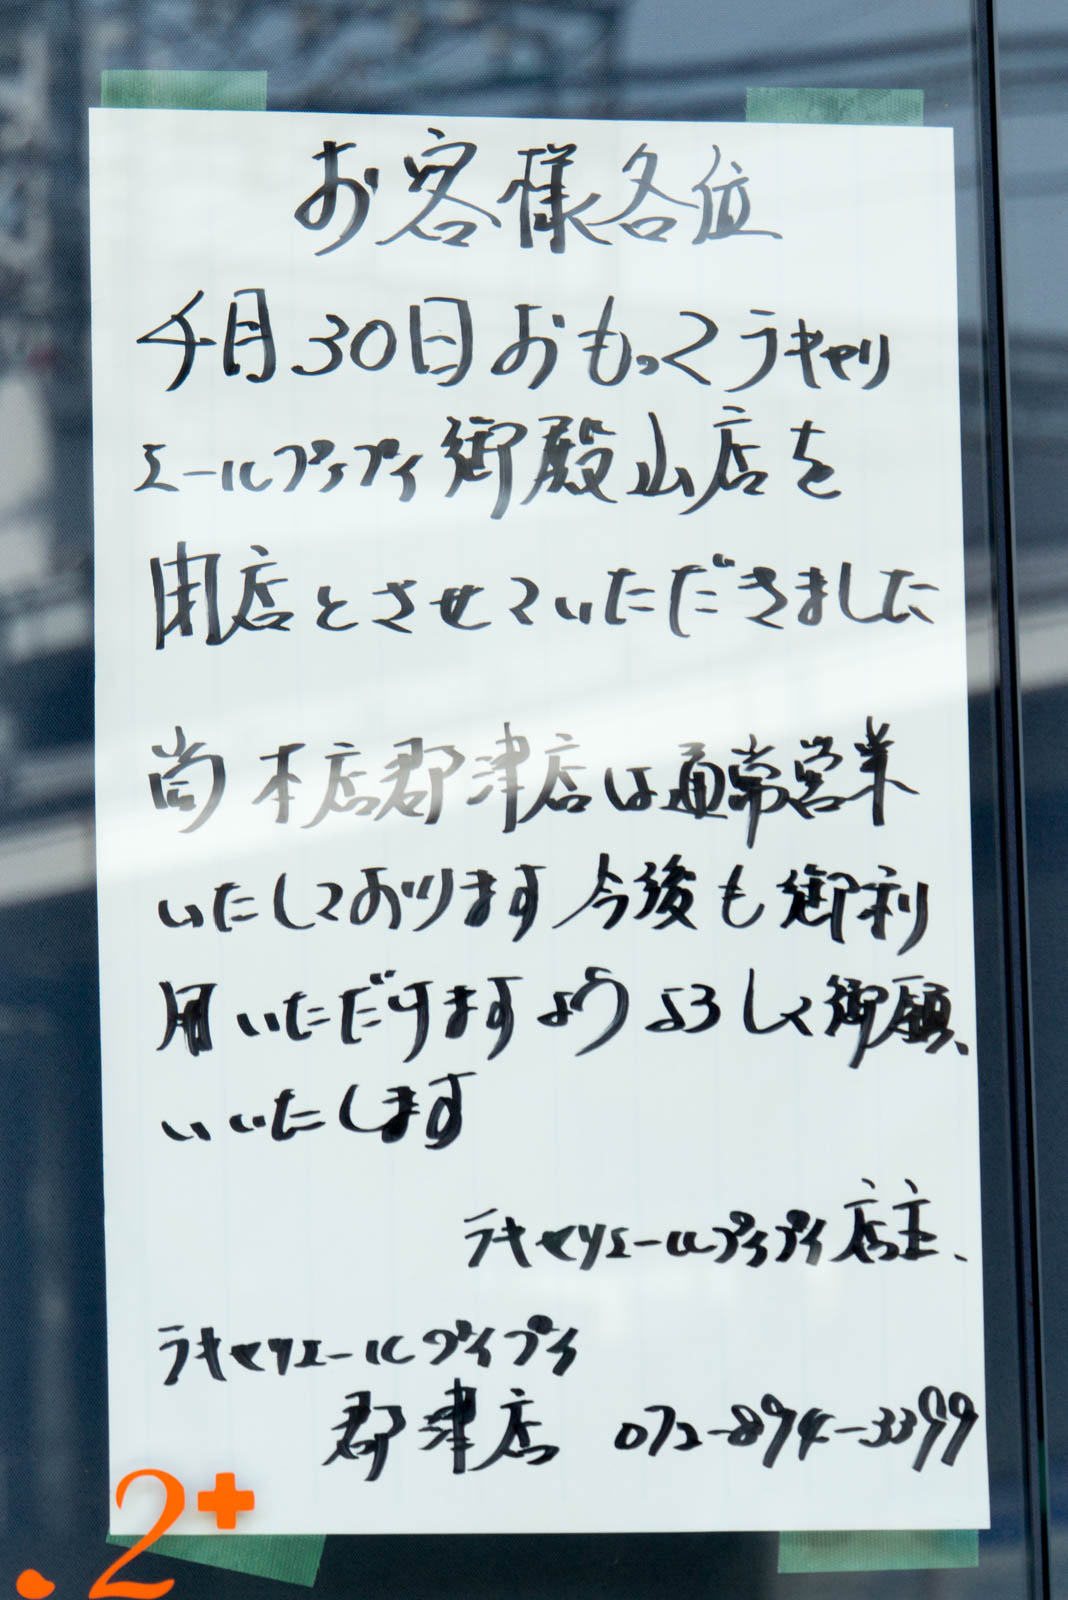 お客様各位
4月30日おもってラキャリ
エールプティプティ御殿山店を
閉店とさせていただきました
尚本店郡津店は通常営業
いたしております今後も御利
用いただけますようよろしく御願、
いいたします
ラキャリエールプティプティ店主、
ラキャリエールプティプティ
郡津店 072-894-3399
.2+